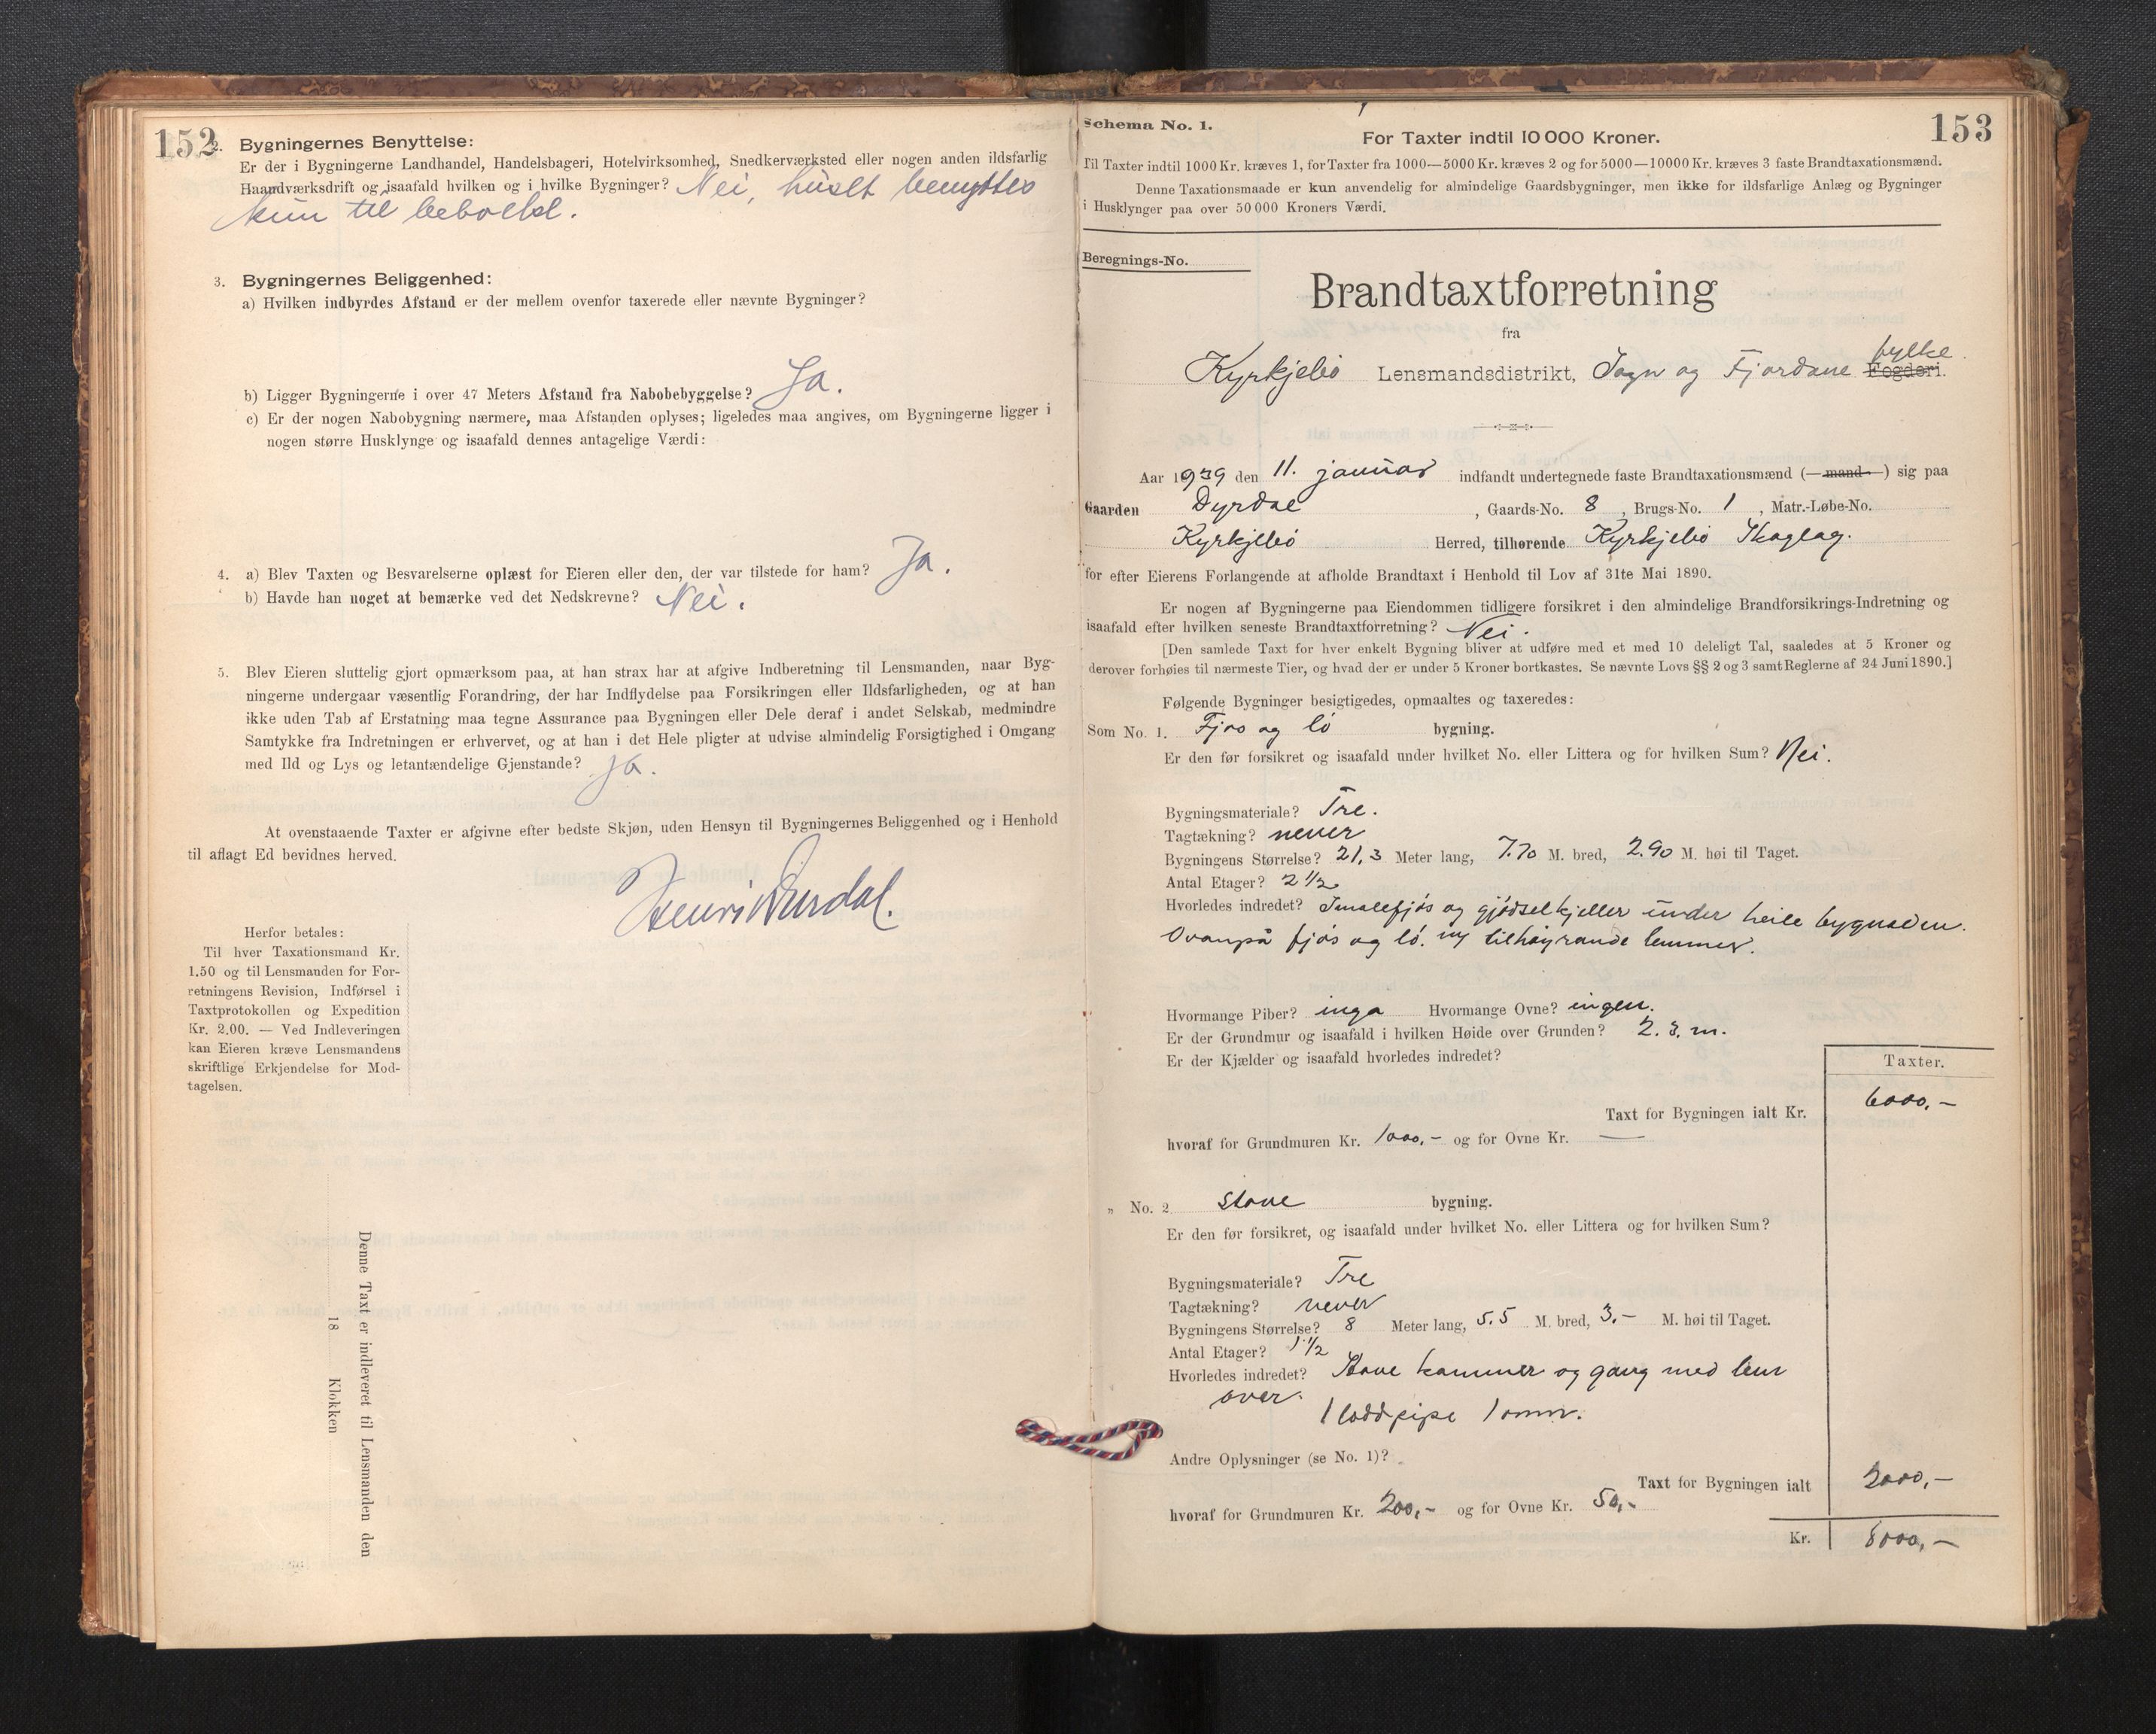 152
2. Bygningernes Benyttelse:
Er der i Bygningerne Landhandel, Handelsbageri, Hotelvirksomhed, Snedkerværksted eller nogen anden ildsfarlig
Haandværksdrift og isaafald hvilken og i hvilke Bygninger? Nei, huset benyttes
kun til
3. Bygningernes Beliggenhed:
a) Hvilken indbyrdes Afstand er der mellem ovenfor taxerede eller nævnte Bygninger?
b) Ligger Bygningerne i over 47 Meters Afstand fra Nabobebyggelse? Ja.
c) Er der nogen Nabobygning nærmere, maa Afstanden oplyses; ligeledes maa angives, om Bygningerne ligger i
nogen større Husklynge og isaafald dennes antagelige Værdi:
4. a) Blev Taxten og Besvarelserne oplæst for Eieren eller den, der var tilstede for ham? Ja.
b) Havde han noget at bemærke ved det Nedskrevne? Nei.
5. Blev Eieren sluttelig gjort opmærksom paa, at han strax har at afgive Indberetning til Lensmanden, naar Byg-
ningerne undergaar væsentlig Forandring, der har Indflydelse paa Forsikringen eller Ildsfarligheden, og at han
ikke uden Tab af Erstatning maa tegne Assurance paa Bygningen eller Dele deraf i andet Selskab, medmindre
Samtykke fra Indretningen er erhvervet, og at han i det Hele pligter at udvise almindelig Forsigtighed i Omgang
med Ild og Lys og letantændelige Gjenstande? Ja.
At ovenstaaende Taxter er afgivne efter bedste Skjøn, uden Hensyn til Bygningernes Beliggenhed og i Henhold
til aflagt Ed bevidnes herved.
Herfor betales:
Til hver Taxationsmand Kr.
1.50 og til Lensmanden for For-
retningens Revision, Indførsel i
Taxtprotokollen og Expedition
Kr. 2.00. — Ved Indleveringen
kan Eieren kræve Lensmandens
skriftlige Erkjendelse for Mod-
tagelsen.
Denne Taxt er indleveret til Lensmanden den
18 Klokken
Schema No. 1.
For Taxter indtil 10 000 Kroner.
153
Til Taxter indtil 1000 Kr. kræves 1, for Taxter fra 1000—5000 Kr. kræves 2 og for 5000—10000 Kr. kræves 3 faste Brandtaxationsmænd.
Denne Taxationsmaade er kun anvendelig for almindelige Gaardsbygninger, men ikke for ildsfarlige Anlæg og Bygninger
i Husklynger paa over 50 000 Kroners Værdi.
Beregnings-No.
Brandtaxtforretning
fra
fylke.
Kyrkjebø Lensmandsdistrikt, Sogn og Fjordane Fogderi.
Aar 1939 den 11. januar indfandt undertegnede faste Brandtaxationsmænd (— mand —) sig paa
Gaarden Dyrdal, Gaards-No. 8, Brugs-No. 1, Matr.-Løbe-No.
Kyrkjebø Herred, tilhørende Kyrkjebø Skoglag.
for efter Eierens Forlangende at afholde Brandtaxt i Henhold til Lov af 31te Mai 1890.
Er nogen af Bygningerne paa Eiendommen tidligere forsikret i den almindelige Brandforsikrings-Indretning og
isaafald efter hvilken seneste Brandtaxtforretning? Nei.
[Den samlede Taxt for hver enkelt Bygning bliver at udføre med et med 10 deleligt Tal, saaledes at 5 Kroner og
derover forhøies til nærmeste Tier, og hvad der er under 5 Kroner bortkastes. Se nævnte Lovs §§ 2 og 3 samt Reglerne af 24 Juni 1890.]
Følgende Bygninger besigtigedes, opmaaltes og taxeredes:
Som No. 1. Fjos og lö bygning.
Er den før forsikret og isaafald under hvilket No. eller Littera og for hvilken Sum? Nei.
Bygningsmateriale? Tre.
Tagtækning? never
Bygningens Størrelse? 21,3 Meter lang, 7.70 M. bred, 2.90 M. høi til Taget.
Antal Etager? 2 1/2
Hvorledes indredet? Smalefjös og gjödselkjeller under heile bygnaden.
Ovanpå fjös og lö. og tilhøyrande lemmer.
Hvormange Piber? inga Hvormange Ovne? ingen.
Er der Grundmur og isaafald i hvilken Høide over Grunden? 2.3. m.
Er der Kjælder og isaafald hvorledes indredet?
Taxter.
Taxt for Bygningen ialt Kr. 6000,-
hvoraf for Grundmuren Kr. 1000,- og for Ovne Kr. —
„ No. 2 Stove bygning.
Er den før forsikret, og isaafald under hvilket No. eller Littera og for hvilken Sum?
Bygningsmateriale? Tre
Tagtækning? never
Bygningens Størrelse? 8 Meter lang, 5.5 M. bred, 3.- M. høi til Taget.
Antal Etager? 1 1/2
Hvorledes indredet? Stove kammer og gang med lem
over.
1 loddpipe 1 omn.
Andre Oplysninger (se No. 1)?
Taxt for Bygningen ialt 2000,-
hvoraf for Grundmuren Kr. 200,- og for Ovne Kr. 50,-
Kr. 8000,-